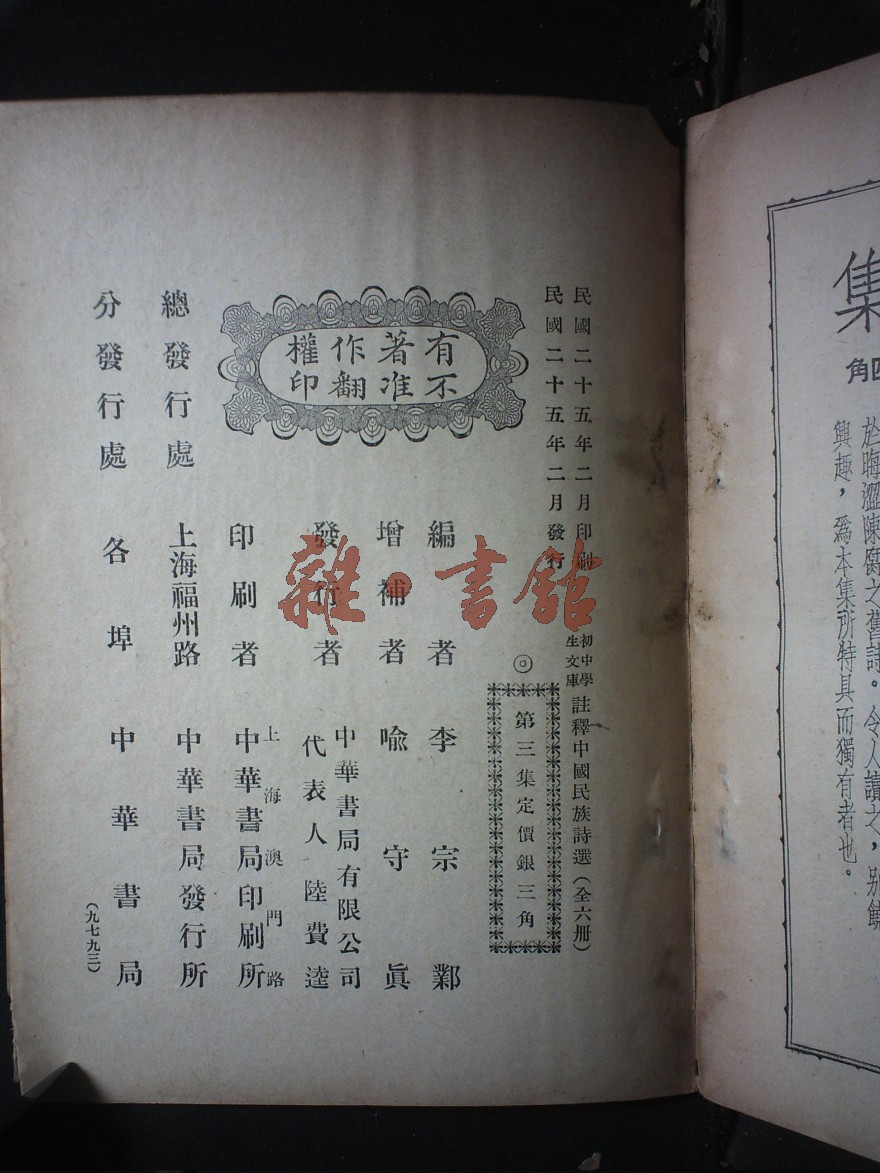 民國二十五年二月印刷
民國二十五年二月發行
初中學
生文庫
註釋中國民族詩選(全六册)
◎
第三集定價銀三角
有不
著准
作翻
權印
編者 李宗鄴
增補者 喩守眞
發行者 中華書局有限公司
代表人陸費逵
印刷者 上海澳門路
中華書局印刷所
總發行處 上海福州路 中華書局發行所
分發行處 各埠 中華書局
(九七九三)
雜·書館
集
四角
於晦澀陳腐之舊詩。令人讀之,別饒
興趣,爲本集所特具而獨有者也。